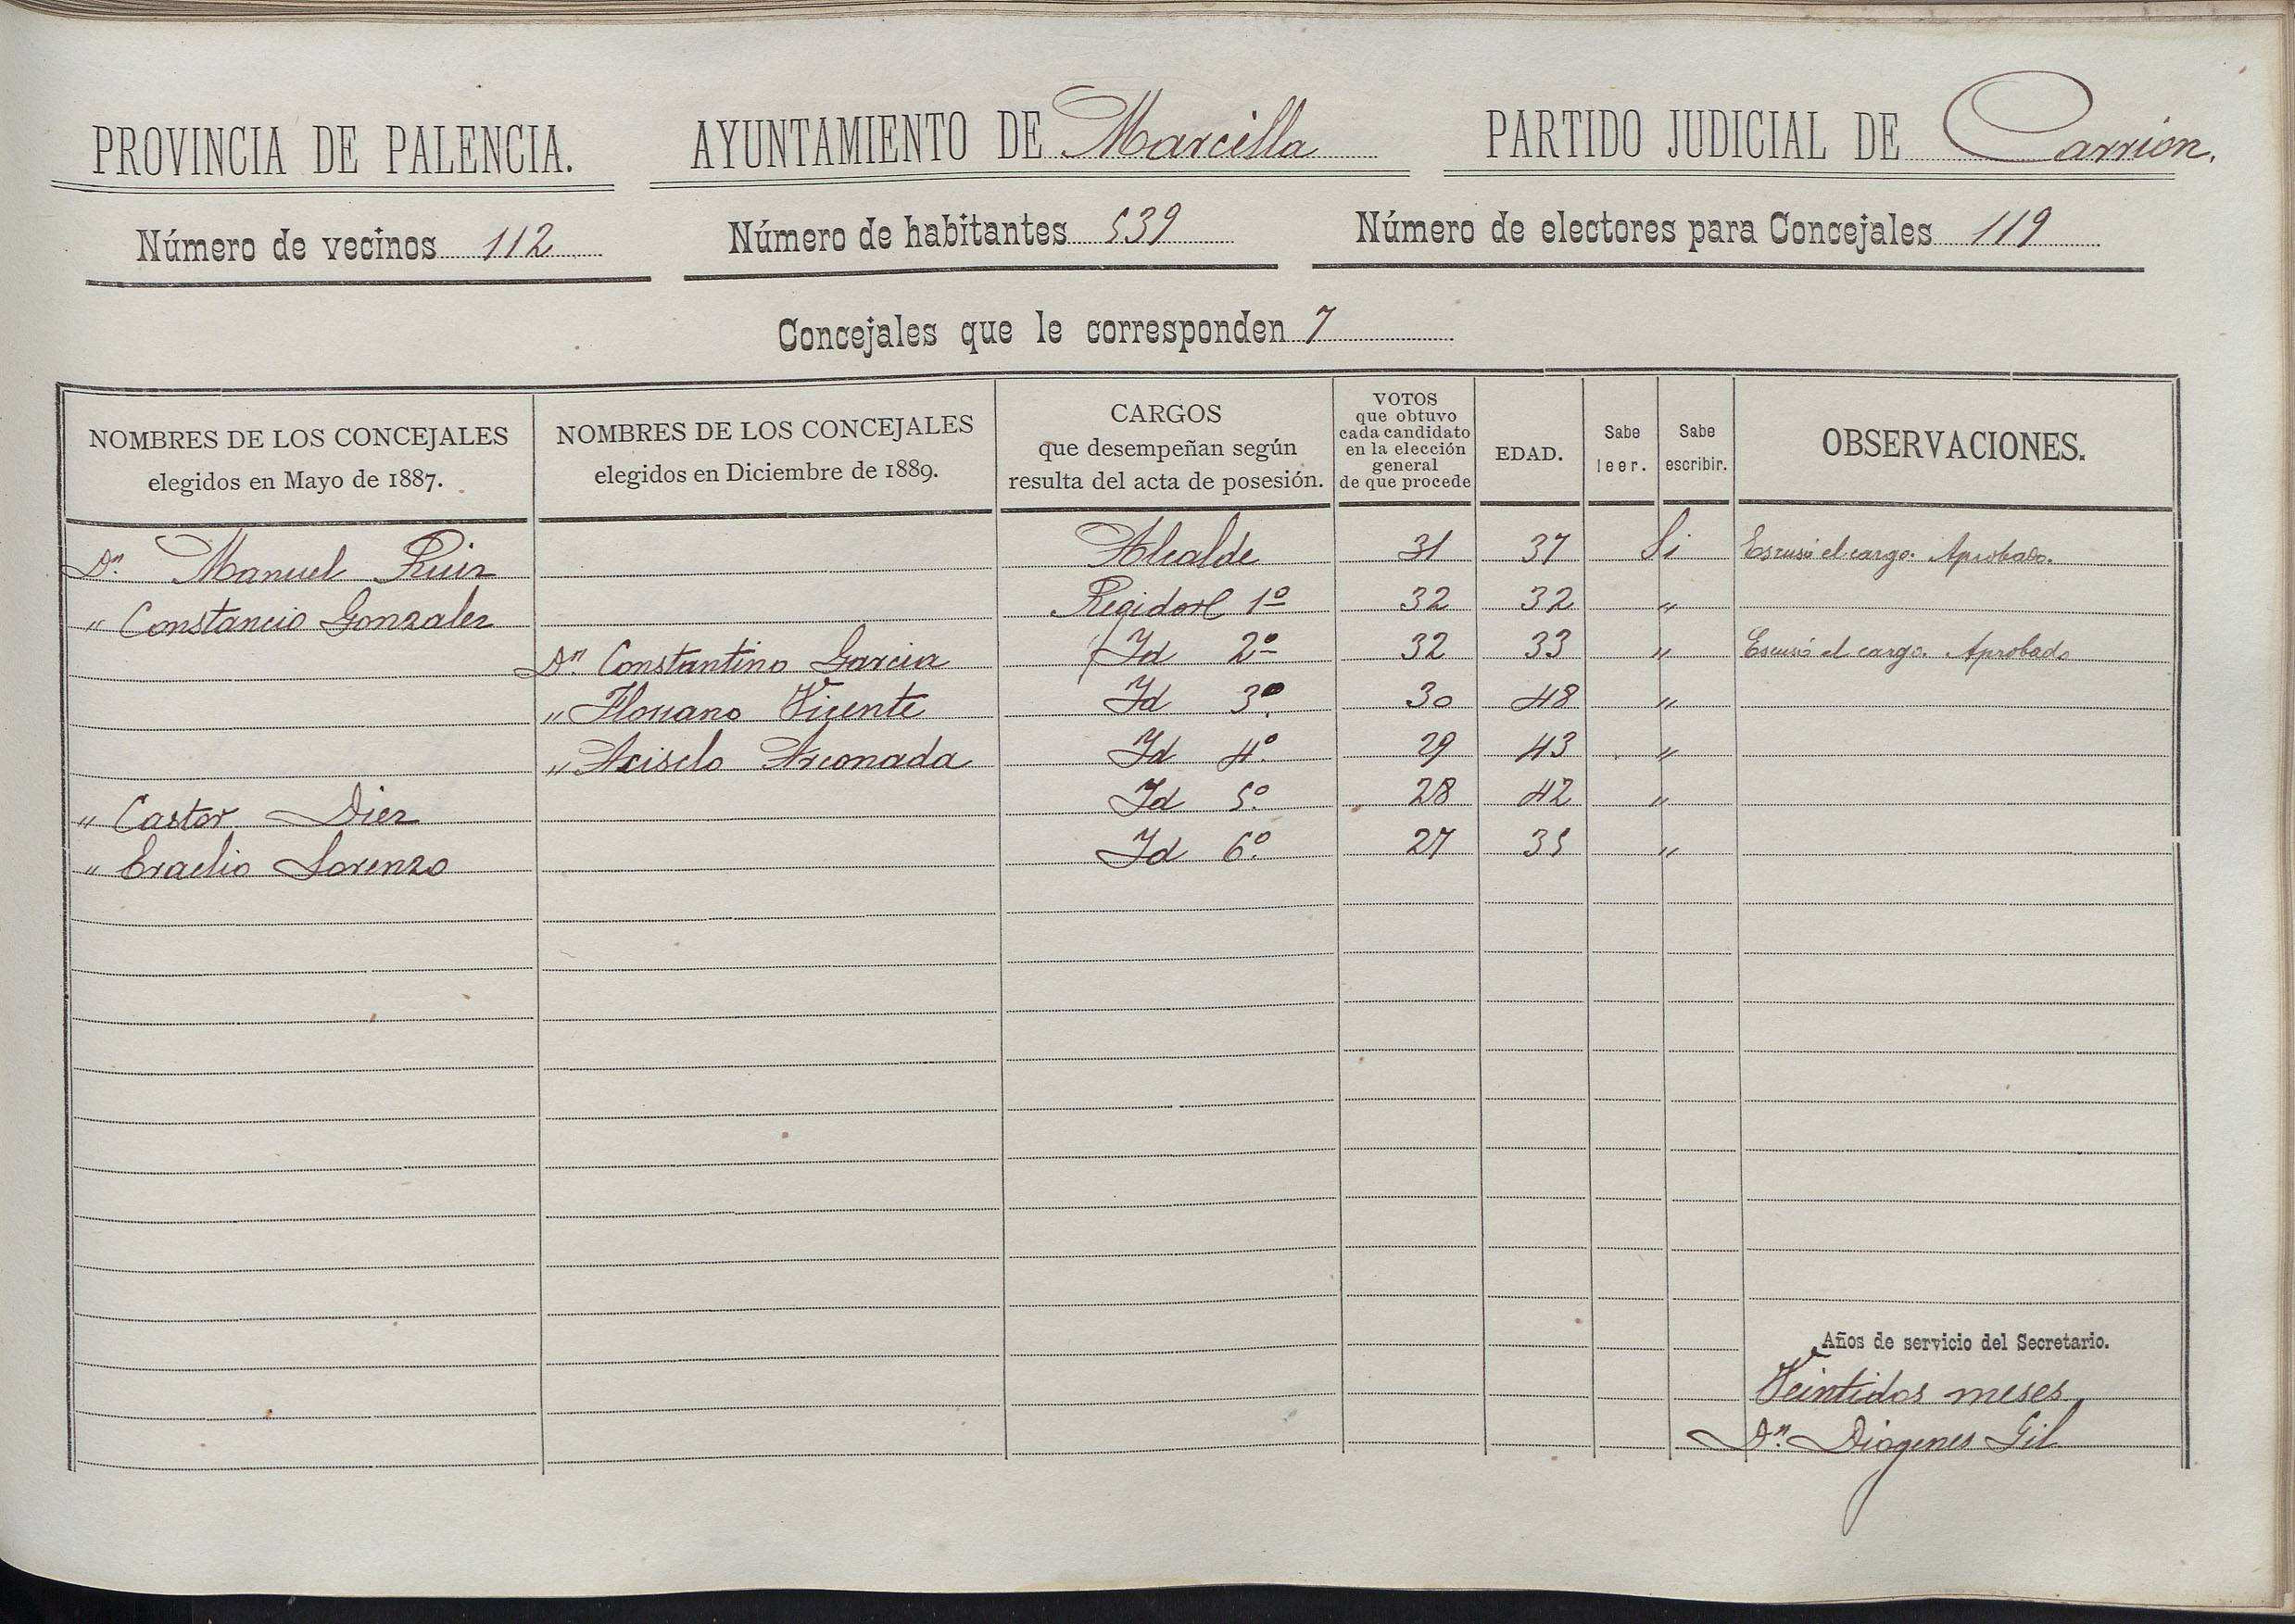 PROVINCIA DE PALENCIA. AYUNTAMIENTO DE Marcilla PARTIDO JUDICIAL DE Carrion.
Número de vecinos 112 Número de habitantes 539 Número de electores para Concejales 119
Concejales que le corresponden 7
NOMBRES DE LOS CONCEJALES elegidos en Mayo de 1887. NOMBRES DE LOS CONCEJALES elegidos en Diciembre de 1889. CARGOS que desempeñan según resulta del acta de posesión. VOTOS que obtuvo cada candidato en la elección general de que procede EDAD. Sabe leer. Sabe escribir. OBSERVACIONES.
Dn. Manuel Ruiz Alcalde 31 37 Si Escusó el cargo. Aprobado.
" Constancio Gonzalez Regidor 1º 32 32 "
Dn. Constantino Garcia Id 2º 32 33 " Escusó el cargo. Aprobado
" Floriano Vicente Id 3º 30 48 "
" Acisclo Arconada Id 4º 29 43 "
" Castor Diez Id 5º 28 42 "
" Eraclio Lorenzo Id 6º 27 35 "
Años de servicio del Secretario.
Veintidos meses
Dn. Diogenes Gil